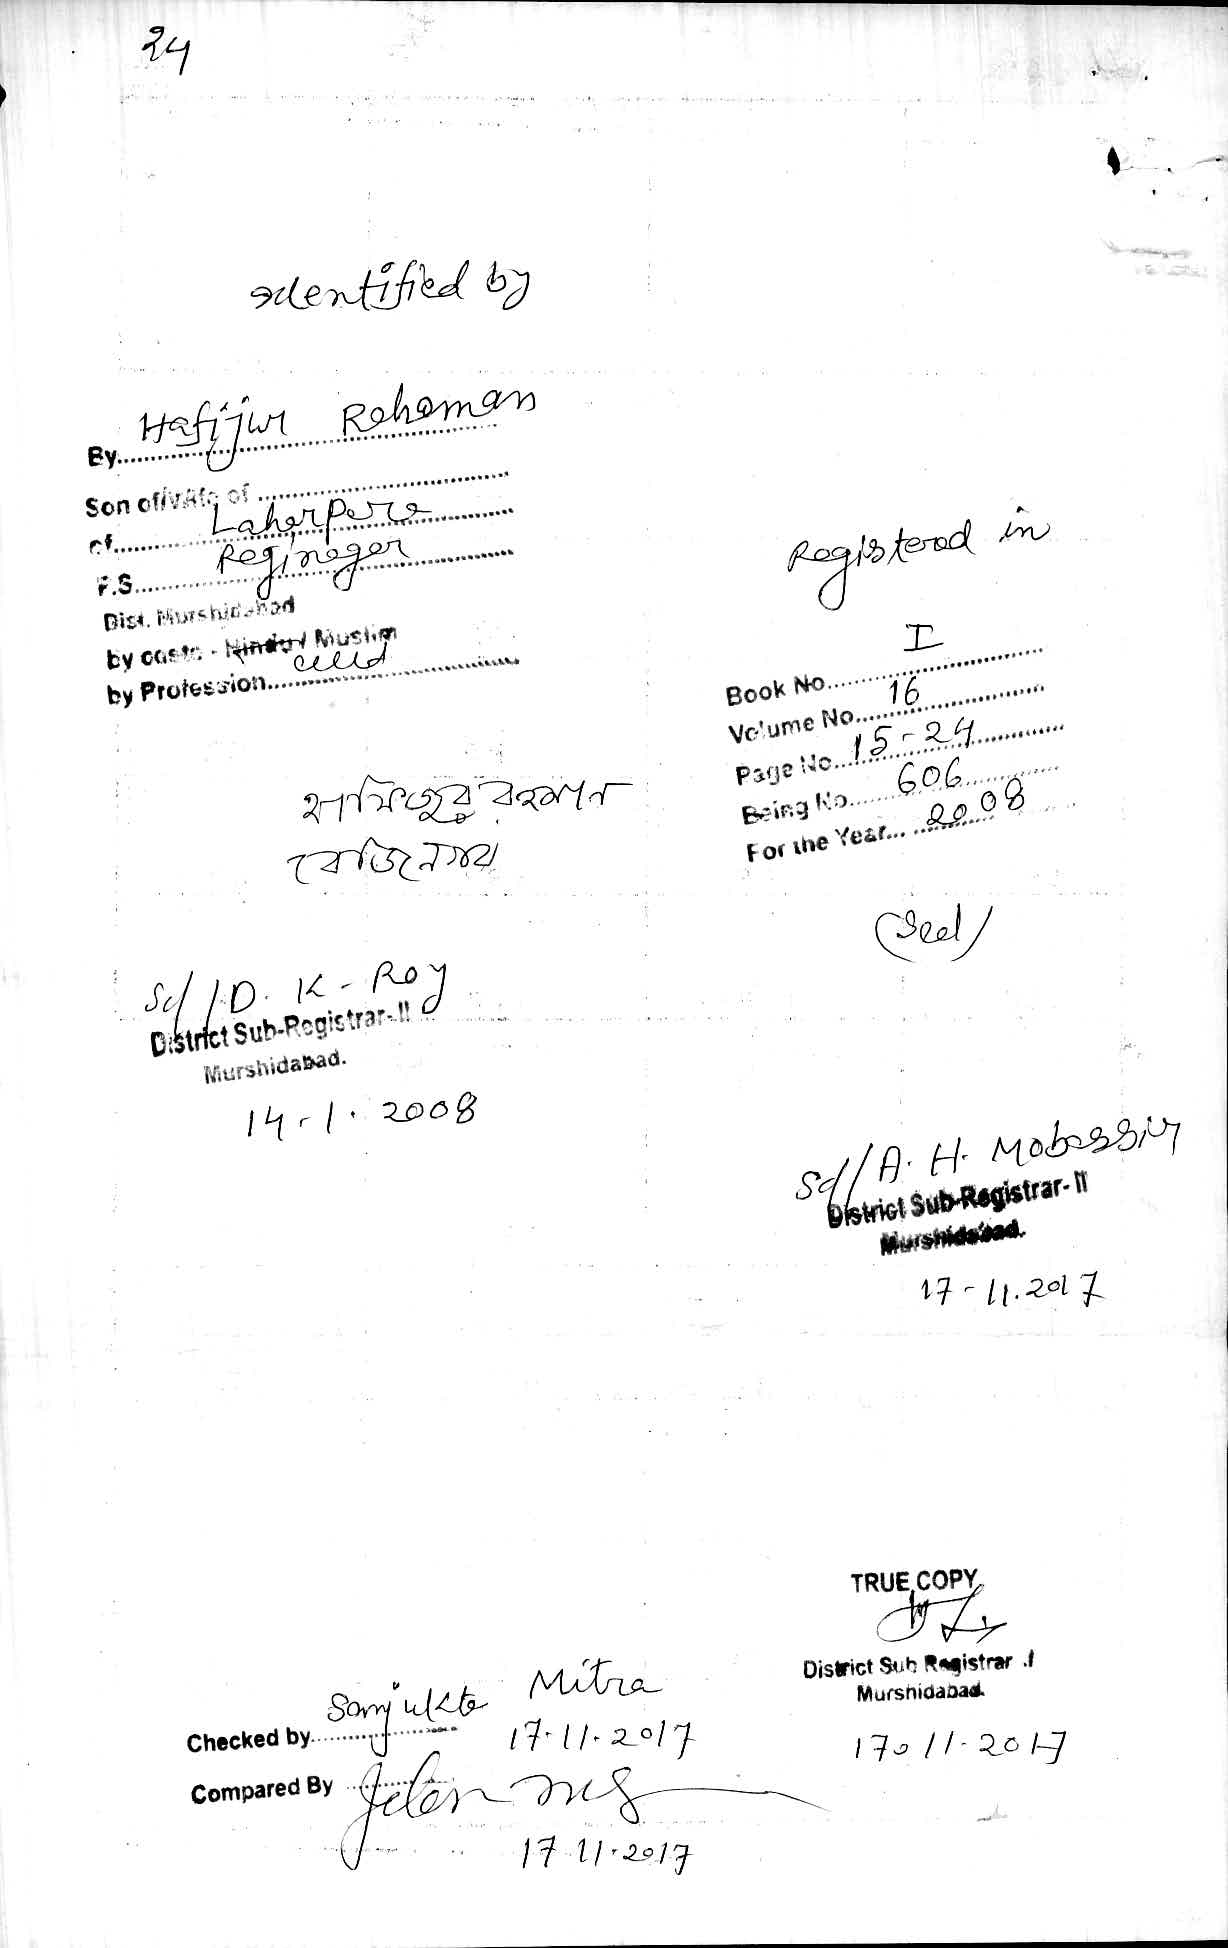 24
Identified by
By Hafijur Rohoman
Son of/Wife of
of Laharpara
P.S. Rejinagar
Dist. Murshidabad
by caste - Hindu / Muslim
by Profession
হাফিজুর রহমান
রেজিনগর
Sd/ D. K. Roy
District Sub-Registrar-II
Murshidabad.
14-1.2008
Registered in
Book No. I
Volume No. 16
Page No. 15-24
Being No. 606
For the Year... 2008
(Seal)
Sd/ A. H. Mobassir
District Sub-Registrar-II
Murshidabad.
17-11.2017
TRUE COPY
District Sub Registrar
Murshidabad.
17.11.2017
Checked by Sanjukta Mitra
17.11.2017
Compared By
17.11.2017